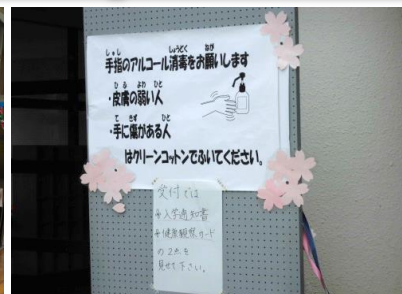 手指のアルコール消毒をお願いします
・皮膚の弱い人
・手に傷がある人
はクリーンコットンでふいてください。
受付では
*入学通知書
*健康観察カード
の2点を
見せて下さい。